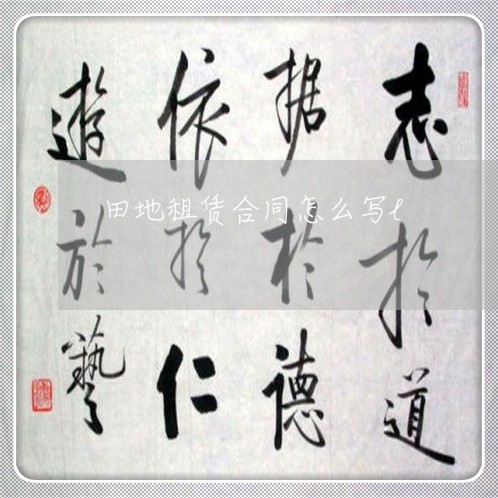 志於道
据於德
依於仁
遊於藝
田地租赁合同怎么写